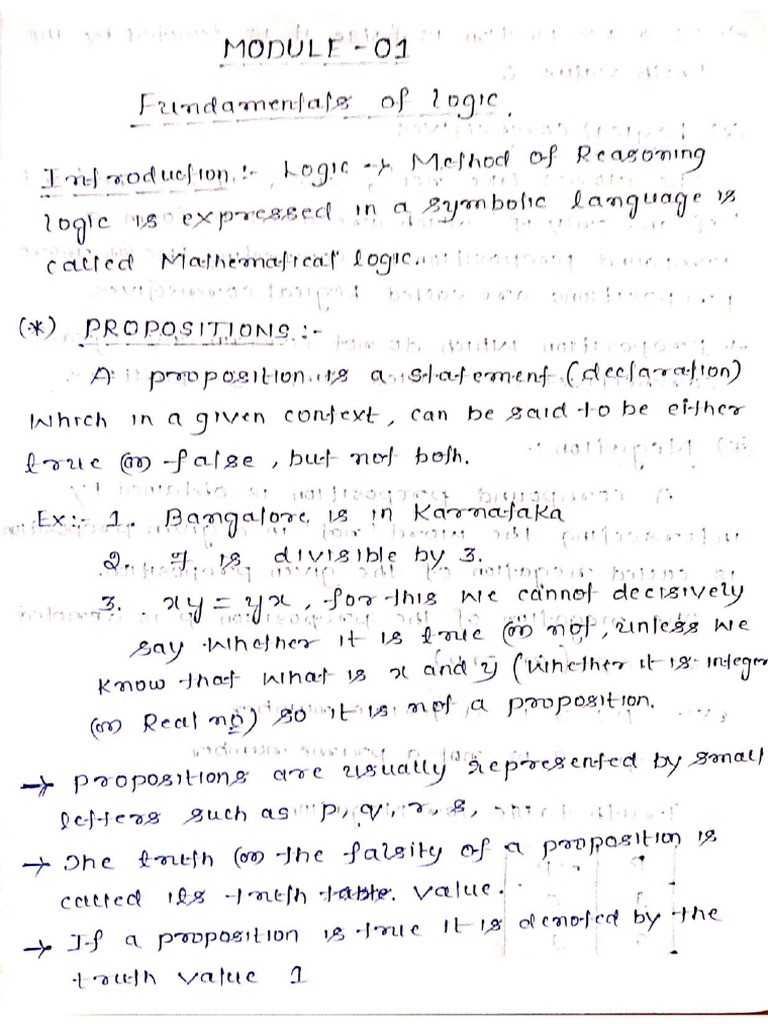 MODULE - 01
Fundamentals of logic.
Introduction :- Logic → Method of Reasoning
logic is expressed in a symbolic language is
called Mathematical logic.
(*) PROPOSITIONS :-
A proposition is a statement (declaration)
Which in a given context, can be said to be either
true (or) false, but not both.
Ex:- 1. Bangalore is in Karnataka
2. 7 is divisible by 3.
3. xy = yx, for this we cannot decisively
say whether it is true (or) not, unless we
know that what is x and y (whether it is integer
(or) Real no) so it is not a proposition.
→ propositions are usually represented by small
letters such as p, q, r, s,
→ The truth (or) the falsity of a proposition is
called its truth table. value.
→ If a proposition is true it is denoted by the
truth value 1